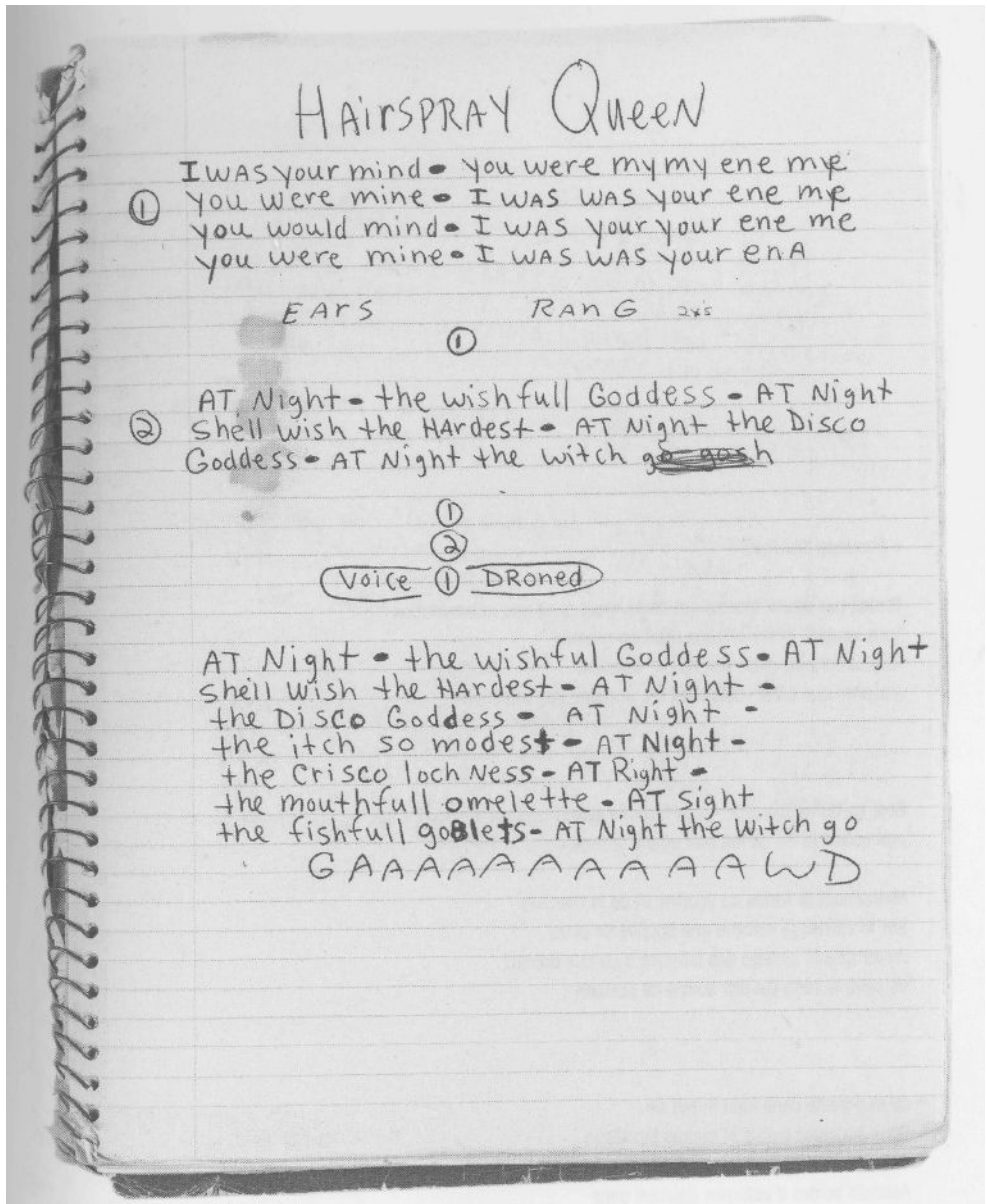 HAirSPRAY QueeN
I WAS your mind - you were my my ene mye
① you were mine - I WAS WAS your ene me
you would mind - I WAS your your ene me
you were mine - I WAS WAS your enA
EArS RAnG 2x's
①
AT Night - the wishfull Goddess - AT Night
② Shell wish the HArdest - AT Night the Disco
Goddess - AT Night the witch go gosh
①
②
Voice ① DRoned
AT Night - the wishful Goddess - AT Night
shell wish the HArdest - AT Night -
the Disco Goddess - AT Night -
the itch so modest - AT Night -
the Crisco loch Ness - AT Right -
the mouthfull omelette - AT sight
the fishfull goBlets - AT Night the witch go
GAAAAAAAAAAAWD